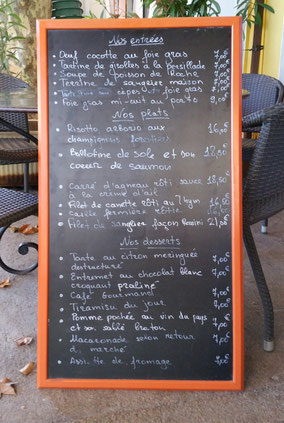 Nos entrées
• Oeuf cocotte au foie gras 7,00€
• Tartine de girolles à la persillade 7,00€
• Soupe de poisson de Roche 7,00€
• Terrine de sanglier maison 7,00€
foie gras
• Foie gras mi-cuit au porto 9,00€
Nos plats
• Risotto arborio aux 16,00€
champignons
• Ballotine de sole et son 18,50€
coeur de saumon
• Carré d'agneau rôti sauce 18,50€
à la crème d'ail
• Filet de canette rôti au thym 16,50€
• Caille fermière rôtie
• Filet de sanglier façon 21,00€
Nos desserts
• Tarte au citron meringuée 7,00€
destructuré
• Entremet au chocolat blanc 7,00€
croquant praliné
• Café Gourmand 7,00€
• Tiramisu du jour
• Pomme pochée au vin du pays 7,00€
et son sablé Breton
• Macaronade selon retour 7,00€
du marché
• Assiette de fromage